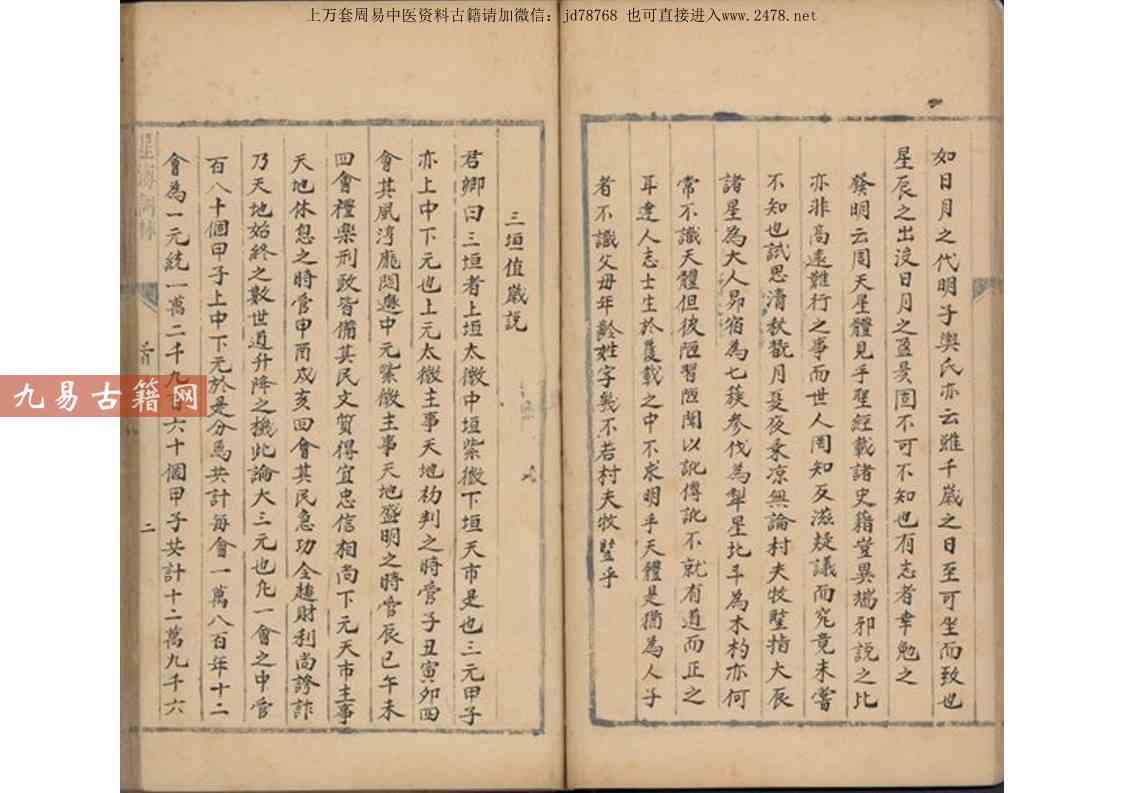 上万套周易中医资料古籍请加微信：jd78768 也可直接进入www.2478.net
如日月之代明子輿氏亦云雖千歲之日至可坐而致也
星辰之出沒日月之盈昃固不可不知也有志者幸勉之
發明云周天星體見乎聖經載諸史籍豈異端邪說之比
亦非高遠難行之事而世人罔知反滋疑議而究竟未嘗
不知也試思清秋翫月夏夜乘凉無論村夫牧豎指大辰
諸星為大人昴宿為七簇參伐為犁星北斗為木杓亦何
常不識天體但彼陋習陋聞以訛傳訛不就有道而正之
耳達人志士生於覆載之中不求明乎天體是猶為人子
者不識父母年齡姓字幾不若村夫牧豎乎
三垣值歲說
君卿曰三垣者上垣太微中垣紫微下垣天市是也三元甲子
亦上中下元也上元太微主事天地初判之時管子丑寅卯四
會其風淳龐悶邈中元紫微主事天地盛明之時管辰巳午未
四會禮樂刑政皆備其民文質得宜忠信相尚下元天市主事
天地休息之時管申酉戌亥四會其民急功全趨財利尚誇詐
乃天地始終之數世道升降之機此論大三元也凢一會之中管
百八十個甲子上中下元於是分焉共計每會一萬八百年十二
會為一元統一萬二千九百六十個甲子共計十二萬九千六
二
九易古籍网